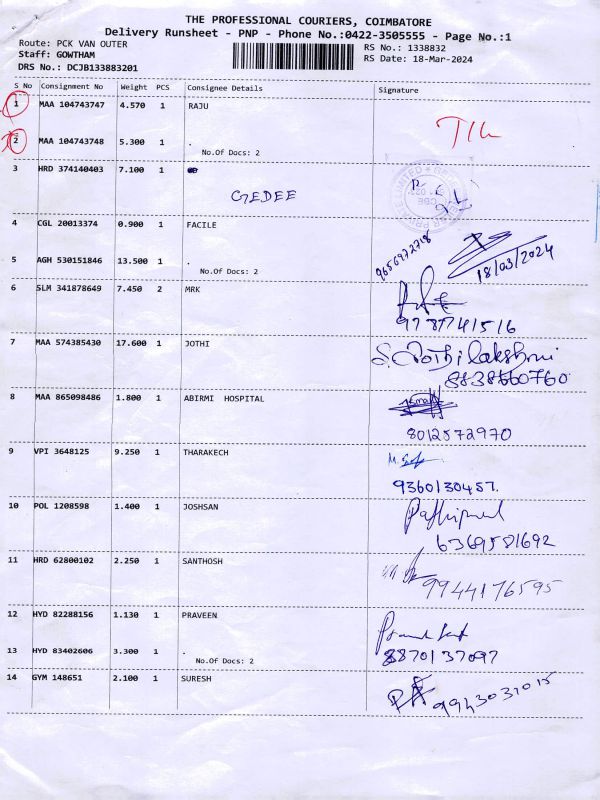 THE PROFESSIONAL COURIERS, COIMBATORE
Delivery Runsheet - PNP - Phone No.:0422-3505555 - Page No.:1
Route: PCK VAN OUTER RS No.: 1338832
Staff: GOWTHAM RS Date: 18-Mar-2024
DRS No.: DCJB133883201
S No Consignment No Weight PCS Consignee Details Signature
1 MAA 104743747 4.570 1 RAJU
2 MAA 104743748 5.300 1 .
No.Of Docs: 2
3 HRD 374140403 7.100 1
GEDEE
4 CGL 20013374 0.900 1 FACILE
9656972718 18/03/2024
5 AGH 530151846 13.500 1 .
No.Of Docs: 2
6 SLM 341878649 7.450 2 MRK
7 MAA 574385430 17.600 1 JOTHI
8 MAA 865098486 1.800 1 ABIRMI HOSPITAL
8012572970
9 VPI 3648125 9.250 1 THARAKECH
9360130457.
10 POL 1208598 1.400 1 JOSHSAN
6369581692
11 HRD 62800102 2.250 1 SANTHOSH
9944176595
12 HYD 82288156 1.130 1 PRAVEEN
13 HYD 83402606 3.300 1 .
8870137097
No.Of Docs: 2
14 GYM 148651 2.100 1 SURESH